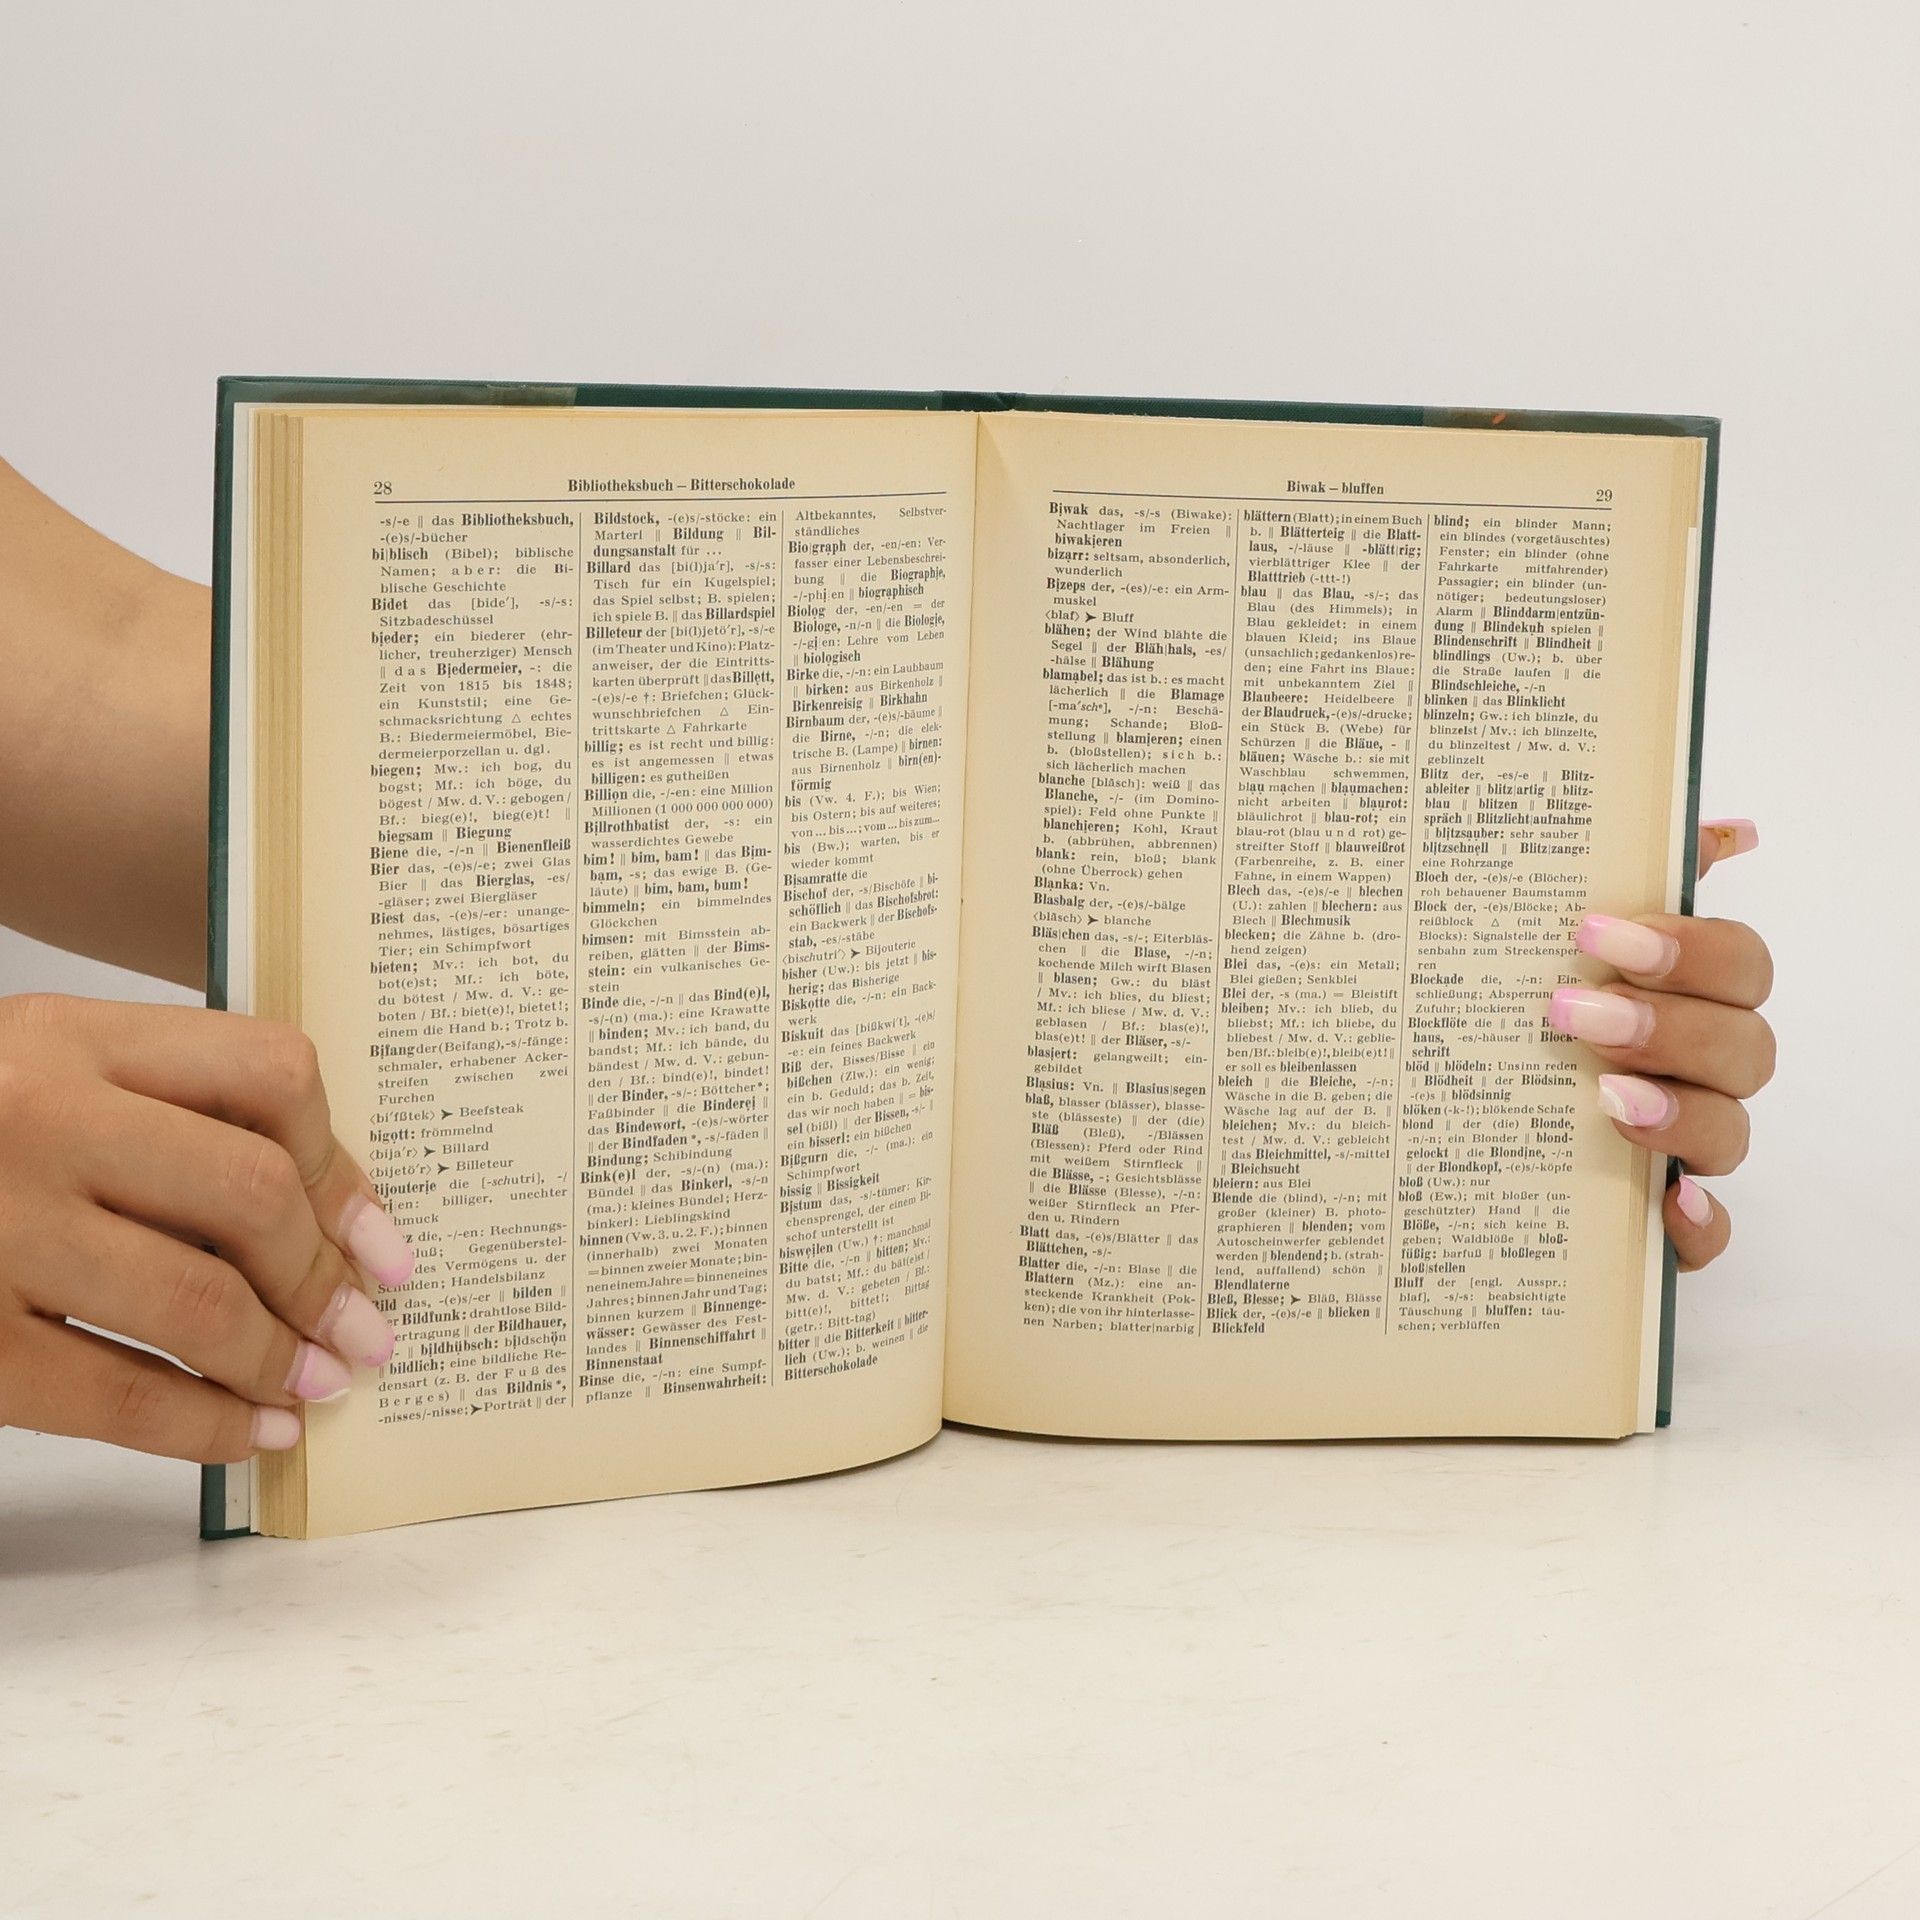 28
Bibliotheksbuch – Bitterschokolade
-s/-e ‖ das Bibliotheksbuch,
-(e)s/-bücher
bi|blisch (Bibel); biblische
Namen; aber: die Bi-
blische Geschichte
Bidet das [bide'], -s/-s:
Sitzbadeschüssel
bieder; ein biederer (ehr-
licher, treuherziger) Mensch
‖ das Biedermeier, -: die
Zeit von 1815 bis 1848;
ein Kunststil; eine Ge-
schmacksrichtung △ echtes
B.: Biedermeiermöbel, Bie-
dermeierporzellan u. dgl.
biegen; Mw.: ich bog, du
bogst; Mf.: ich böge, du
bögest / Mw. d. V.: gebogen /
Bf.: bieg(e)!, bieg(e)t! ‖
biegsam ‖ Biegung
Biene die, -/-n ‖ Bienenfleiß
Bier das, -(e)s/-e; zwei Glas
Bier ‖ das Bierglas, -es/
-gläser; zwei Biergläser
Biest das, -(e)s/-er: unange-
nehmes, lästiges, bösartiges
Tier; ein Schimpfwort
bieten; Mv.: ich bot, du
bot(e)st; Mf.: ich böte,
du bötest / Mw. d. V.: ge-
boten / Bf.: biet(e)!, bietet!;
einem die Hand b.; Trotz b.
Bifang der (Beifang), -s/-fänge:
schmaler, erhabener Acker-
streifen zwischen zwei
Furchen
⟨bi'fßtek⟩ ➤ Beefsteak
bigott: frömmelnd
⟨bija'r⟩ ➤ Billard
⟨bijetö'r⟩ ➤ Billeteur
Bijouterie die [-schutri], -/
en: billiger, unechter
hmuck
z die, -/-en: Rechnungs-
luß; Gegenüberstel-
des Vermögens u. der
Schulden; Handelsbilanz
Bild das, -(e)s/-er ‖ bilden ‖
er Bildfunk: drahtlose Bild-
ertragung ‖ der Bildhauer,
/- ‖ bildhübsch: bildschön
‖ bildlich; eine bildliche Re-
densart (z. B. der Fuß des
Berges) ‖ das Bildnis*,
-nisses/-nisse; ➤ Porträt ‖ der
Bildstock, -(e)s/-stöcke: ein
Marterl ‖ Bildung ‖ Bil-
dungsanstalt für ...
Billard das [bi(l)ja'r], -s/-s:
Tisch für ein Kugelspiel;
das Spiel selbst; B. spielen;
ich spiele B. ‖ das Billardspiel
Billeteur der [bi(l)jetö'r], -s/-e
(im Theater und Kino): Platz-
anweiser, der die Eintritts-
karten überprüft ‖ das Billett,
-(e)s/-e †: Briefchen; Glück-
wunschbriefchen △ Ein-
trittskarte △ Fahrkarte
billig; es ist recht und billig:
es ist angemessen ‖ etwas
billigen: es gutheißen
Billion die, -/-en: eine Million
Millionen (1 000 000 000 000)
Billrothbatist der, -s: ein
wasserdichtes Gewebe
bim! ‖ bim, bam! ‖ das Bim-
bam, -s; das ewige B. (Ge-
läute) ‖ bim, bam, bum!
bimmeln; ein bimmelndes
Glöckchen
bimsen: mit Bimsstein ab-
reiben, glätten ‖ der Bims-
stein: ein vulkanisches Ge-
stein
Binde die, -/-n ‖ das Bind(e)l,
-s/-(n) (ma.): eine Krawatte
‖ binden; Mv.: ich band, du
bandst; Mf.: ich bände, du
bändest / Mw. d. V.: gebun-
den / Bf.: bind(e)!, bindet!
‖ der Binder, -s/-: Böttcher*;
Faßbinder ‖ die Binderei ‖
das Bindewort, -(e)s/-wörter
‖ der Bindfaden*, -s/-fäden ‖
Bindung; Schibindung
Bink(e)l der, -s/-(n) (ma.):
Bündel ‖ das Binkerl, -s/-n
(ma.): kleines Bündel; Herz-
binkerl: Lieblingskind
binnen (Vw. 3. u. 2. F.); binnen
(innerhalb) zwei Monaten
= binnen zweier Monate; bin-
nen einem Jahre = binnen eines
Jahres; binnen Jahr und Tag;
binnen kurzem ‖ Binnenge-
wässer: Gewässer des Fest-
landes ‖ Binnenschiffahrt ‖
Binnenstaat
Binse die, -/-n: eine Sumpf-
pflanze ‖ Binsenwahrheit:
Altbekanntes, Selbstver-
ständliches
Bio|graph der, -en/-en: Ver-
fasser einer Lebensbeschrei-
bung ‖ die Biographie,
-/-phi|en ‖ biographisch
Biolog der, -en/-en = der
Biologe, -n/-n ‖ die Biologie,
-/-gi|en: Lehre vom Leben
‖ biologisch
Birke die, -/-n: ein Laubbaum
‖ birken: aus Birkenholz ‖
Birkenreisig ‖ Birkhahn
Birnbaum der, -(e)s/-bäume ‖
die Birne, -/-n; die elek-
trische B. (Lampe) ‖ birnen:
aus Birnenholz ‖ birn(en)-
förmig
bis (Vw. 4. F.); bis Wien;
bis Ostern; bis auf weiteres;
von ... bis ...; vom ... bis zum ...
bis (Bw.); warten, bis er
wieder kommt
Bisamratte die
Bischof der, -s/Bischöfe ‖ bi-
schöflich ‖ das Bischofsbrot:
ein Backwerk ‖ der Bischofs-
stab, -es/-stäbe
⟨bischutri'⟩ ➤ Bijouterie
bisher (Uw.): bis jetzt ‖ bis-
herig; das Bisherige
Biskotte die, -/-n: ein Back-
werk
Biskuit das [bißkwi't], -(e)s/
-e: ein feines Backwerk
Biß der, Bisses/Bisse ‖ ein
bißchen (Zlw.): ein wenig;
ein b. Geduld; das b. Zeit,
das wir noch haben ‖ = bis-
sel (bißl) ‖ der Bissen, -s/- ‖
ein bisserl: ein bißchen
Bißgurn die, -/- (ma.): ein
Schimpfwort
bissig ‖ Bissigkeit
Bistum das, -s/-tümer: Kir-
chensprengel, der einem Bi-
schof unterstellt ist
bisweilen (Uw.) †: manchmal
Bitte die, -/-n ‖ bitten; Mv.:
du batst; Mf.: du bät(e)st /
Mw. d. V.: gebeten / Bf.:
bitt(e)!, bittet!; Bittag
(getr.: Bitt-tag)
bitter ‖ die Bitterkeit ‖ bitter-
lich (Uw.); b. weinen ‖ die
Bitterschokolade
Biwak – bluffen
29
Biwak das, -s/-s (Biwake):
Nachtlager im Freien ‖
biwakieren
bizarr: seltsam, absonderlich,
wunderlich
Bizeps der, -(es)/-e: ein Arm-
muskel
⟨blaf⟩ ➤ Bluff
blähen; der Wind blähte die
Segel ‖ der Bläh|hals, -es/
-hälse ‖ Blähung
blamabel; das ist b.: es macht
lächerlich ‖ die Blamage
[-ma'schᵉ], -/-n: Beschä-
mung; Schande; Bloß-
stellung ‖ blamieren; einen
b. (bloßstellen); sich b.:
sich lächerlich machen
blanche [blãsch]: weiß ‖ das
Blanche, -/- (im Domino-
spiel): Feld ohne Punkte ‖
blanchieren; Kohl, Kraut
b. (abbrühen, abbrennen)
blank: rein, bloß; blank
(ohne Überrock) gehen
Blanka: Vn.
Blasbalg der, -(e)s/-bälge
⟨blãsch⟩ ➤ blanche
Bläs|chen das, -s/-; Eiterbläs-
chen ‖ die Blase, -/-n;
kochende Milch wirft Blasen
‖ blasen; Gw.: du bläst
/ Mv.: ich blies, du bliest;
Mf.: ich bliese / Mw. d. V.:
geblasen / Bf.: blas(e)!,
blas(e)t! ‖ der Bläser, -s/-
blasiert: gelangweilt; ein-
gebildet
Blasius: Vn. ‖ Blasius|segen
blaß, blasser (blässer), blasse-
ste (blässeste) ‖ der (die)
Bläß (Bleß), -/Blässen
(Blessen): Pferd oder Rind
mit weißem Stirnfleck ‖
die Blässe, -; Gesichtsblässe
‖ die Blässe (Blesse), -/-n:
weißer Stirnfleck an Pfer-
den u. Rindern
Blatt das, -(e)s/Blätter ‖ das
Blättchen, -s/-
Blatter die, -/-n: Blase ‖ die
Blattern (Mz.): eine an-
steckende Krankheit (Pok-
ken); die von ihr hinterlasse-
nen Narben; blatter|narbig
blättern (Blatt); in einem Buch
b. ‖ Blätterteig ‖ die Blatt-
laus, -/-läuse ‖ -blätt|rig;
vierblättriger Klee ‖ der
Blatttrieb (-ttt-!)
blau ‖ das Blau, -s/-; das
Blau (des Himmels); in
Blau gekleidet: in einem
blauen Kleid; ins Blaue
(unsachlich; gedankenlos) re-
den; eine Fahrt ins Blaue:
mit unbekanntem Ziel ‖
Blaubeere: Heidelbeere ‖
der Blaudruck, -(e)s/-drucke;
ein Stück B. (Webe) für
Schürzen ‖ die Bläue, - ‖
bläuen; Wäsche b.: sie mit
Waschblau schwemmen,
blau machen ‖ blaumachen:
nicht arbeiten ‖ blaurot:
bläulichrot ‖ blau-rot; ein
blau-rot (blau und rot) ge-
streifter Stoff ‖ blauweißrot
(Farbenreihe, z. B. einer
Fahne, in einem Wappen)
Blech das, -(e)s/-e ‖ blechen
(U.): zahlen ‖ blechern: aus
Blech ‖ Blechmusik
blecken; die Zähne b. (dro-
hend zeigen)
Blei das, -(e)s: ein Metall;
Blei gießen; Senkblei
Blei der, -s (ma.) = Bleistift
bleiben; Mv.: ich blieb, du
bliebst; Mf.: ich bliebe, du
bliebest / Mw. d. V.: geblie-
ben / Bf.: bleib(e)!, bleib(e)t! ‖
er soll es bleibenlassen
bleich ‖ die Bleiche, -/-n;
Wäsche in die B. geben; die
Wäsche lag auf der B. ‖
bleichen; Mv.: du bleich-
test / Mw. d. V.: gebleicht
‖ das Bleichmittel, -s/-mittel
‖ Bleichsucht
bleiern: aus Blei
Blende die (blind), -/-n; mit
großer (kleiner) B. photo-
graphieren ‖ blenden; vom
Autoscheinwerfer geblendet
werden ‖ blendend; b. (strah-
lend, auffallend) schön ‖
Blendlaterne
Bleß, Blesse; ➤ Bläß, Blässe
Blick der, -(e)s/-e ‖ blicken ‖
Blickfeld
blind; ein blinder Mann;
ein blindes (vorgetäuschtes)
Fenster; ein blinder (ohne
Fahrkarte mitfahrender)
Passagier; ein blinder (un-
nötiger; bedeutungsloser)
Alarm ‖ Blinddarm|entzün-
dung ‖ Blindekuh spielen ‖
Blindenschrift ‖ Blindheit ‖
blindlings (Uw.); b. über
die Straße laufen ‖ die
Blindschleiche, -/-n
blinken ‖ das Blinklicht
blinzeln; Gw.: ich blinzle, du
blinzelst / Mv.: ich blinzelte,
du blinzeltest / Mw. d. V.:
geblinzelt
Blitz der, -es/-e ‖ Blitz-
ableiter ‖ blitz|artig ‖ blitz-
blau ‖ blitzen ‖ Blitzge-
spräch ‖ Blitzlicht|aufnahme
‖ blitzsauber: sehr sauber ‖
blitzschnell ‖ Blitz|zange:
eine Rohrzange
Bloch der, -(e)s/-e (Blöcher):
roh behauener Baumstamm
Block der, -(e)s/Blöcke; Ab-
reißblock △ (mit Mz.:
Blocks): Signalstelle der E
senbahn zum Streckensper-
ren
Blockade die, -/-n: Ein-
schließung; Absperrung
Zufuhr; blockieren
Blockflöte die ‖ das B
haus, -es/-häuser ‖ Block-
schrift
blöd ‖ blödeln: Unsinn reden
‖ Blödheit ‖ der Blödsinn,
-(e)s ‖ blödsinnig
blöken (-k-!); blökende Schafe
blond ‖ der (die) Blonde,
-n/-n; ein Blonder ‖ blond-
gelockt ‖ die Blondine, -/-n
‖ der Blondkopf, -(e)s/-köpfe
bloß (Uw.): nur
bloß (Ew.); mit bloßer (un-
geschützter) Hand ‖ die
Blöße, -/-n; sich keine B.
geben; Waldblöße ‖ bloß-
füßig: barfuß ‖ bloßlegen ‖
bloß|stellen
Bluff der [engl. Ausspr.:
blaf], -s/-s: beabsichtigte
Täuschung ‖ bluffen: täu-
schen; verblüffen